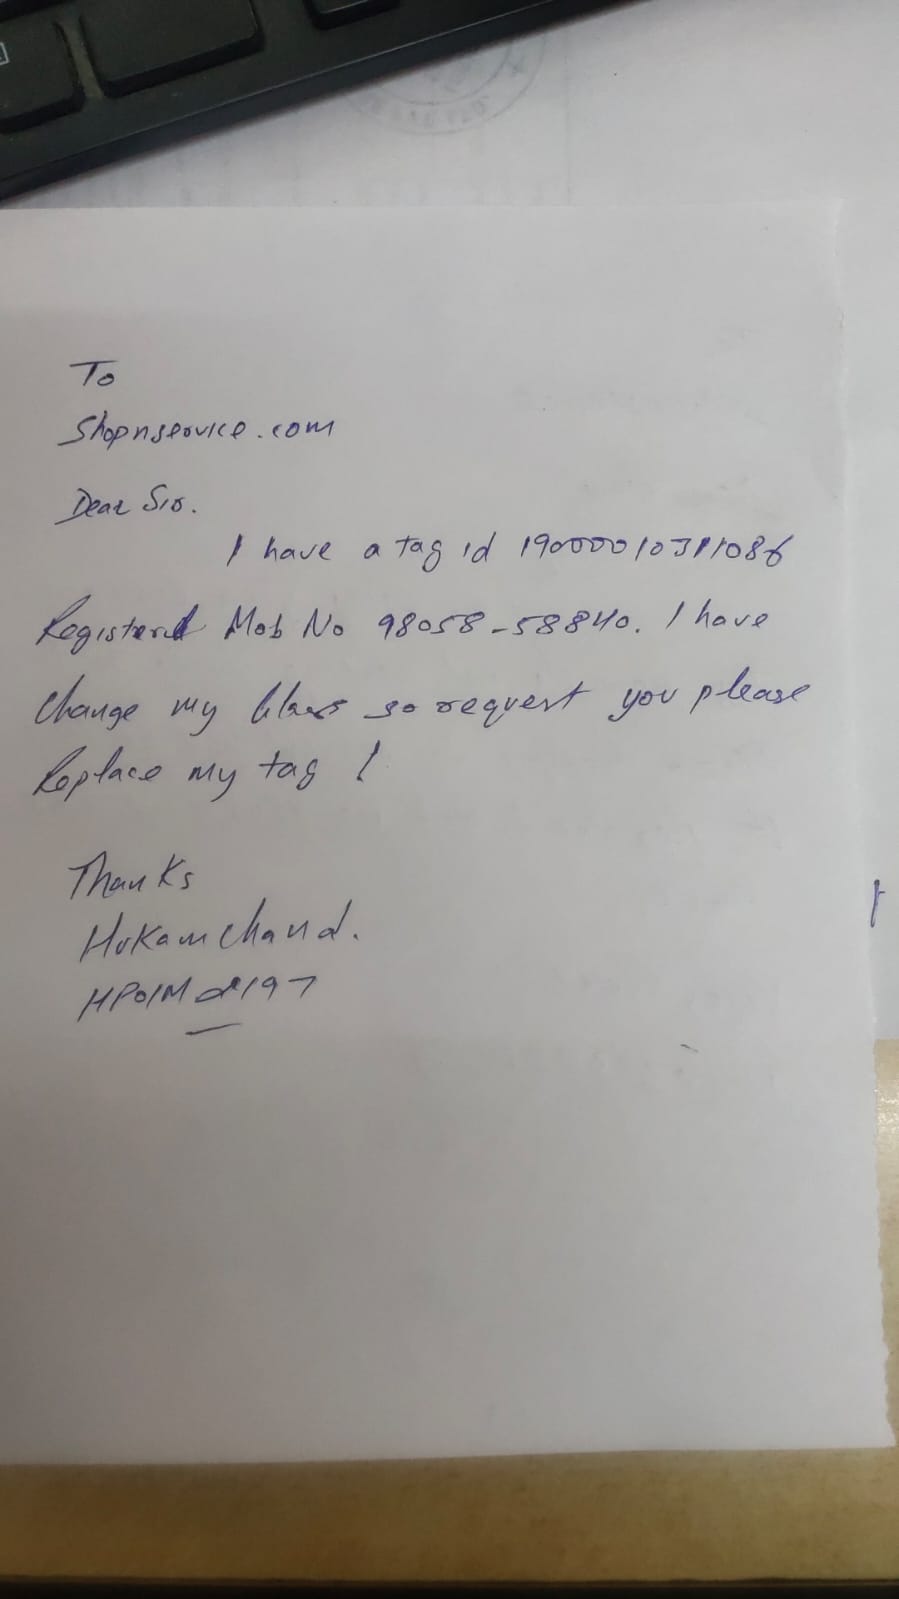 To
Shopnservice.com
Dear Sir.
I have a tag id
Registered Mob No 98058-58840. I have
change my Glass so request you please
Replace my tag !
Thanks
Hukamchand.
HP01M